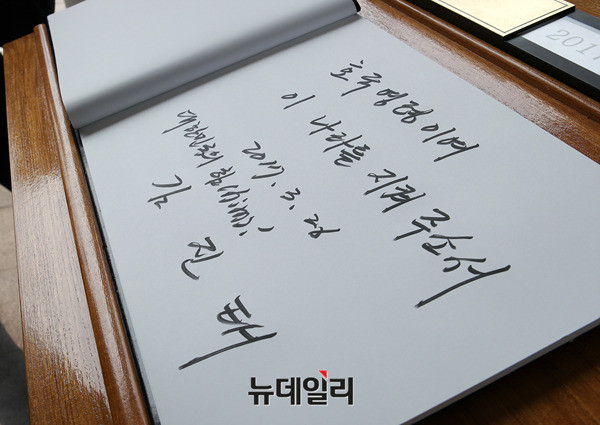 호국영령이여
이 나라를 지켜 주소서
2017. 3. 26
대한민국의 힘
김 진 태
뉴데일리